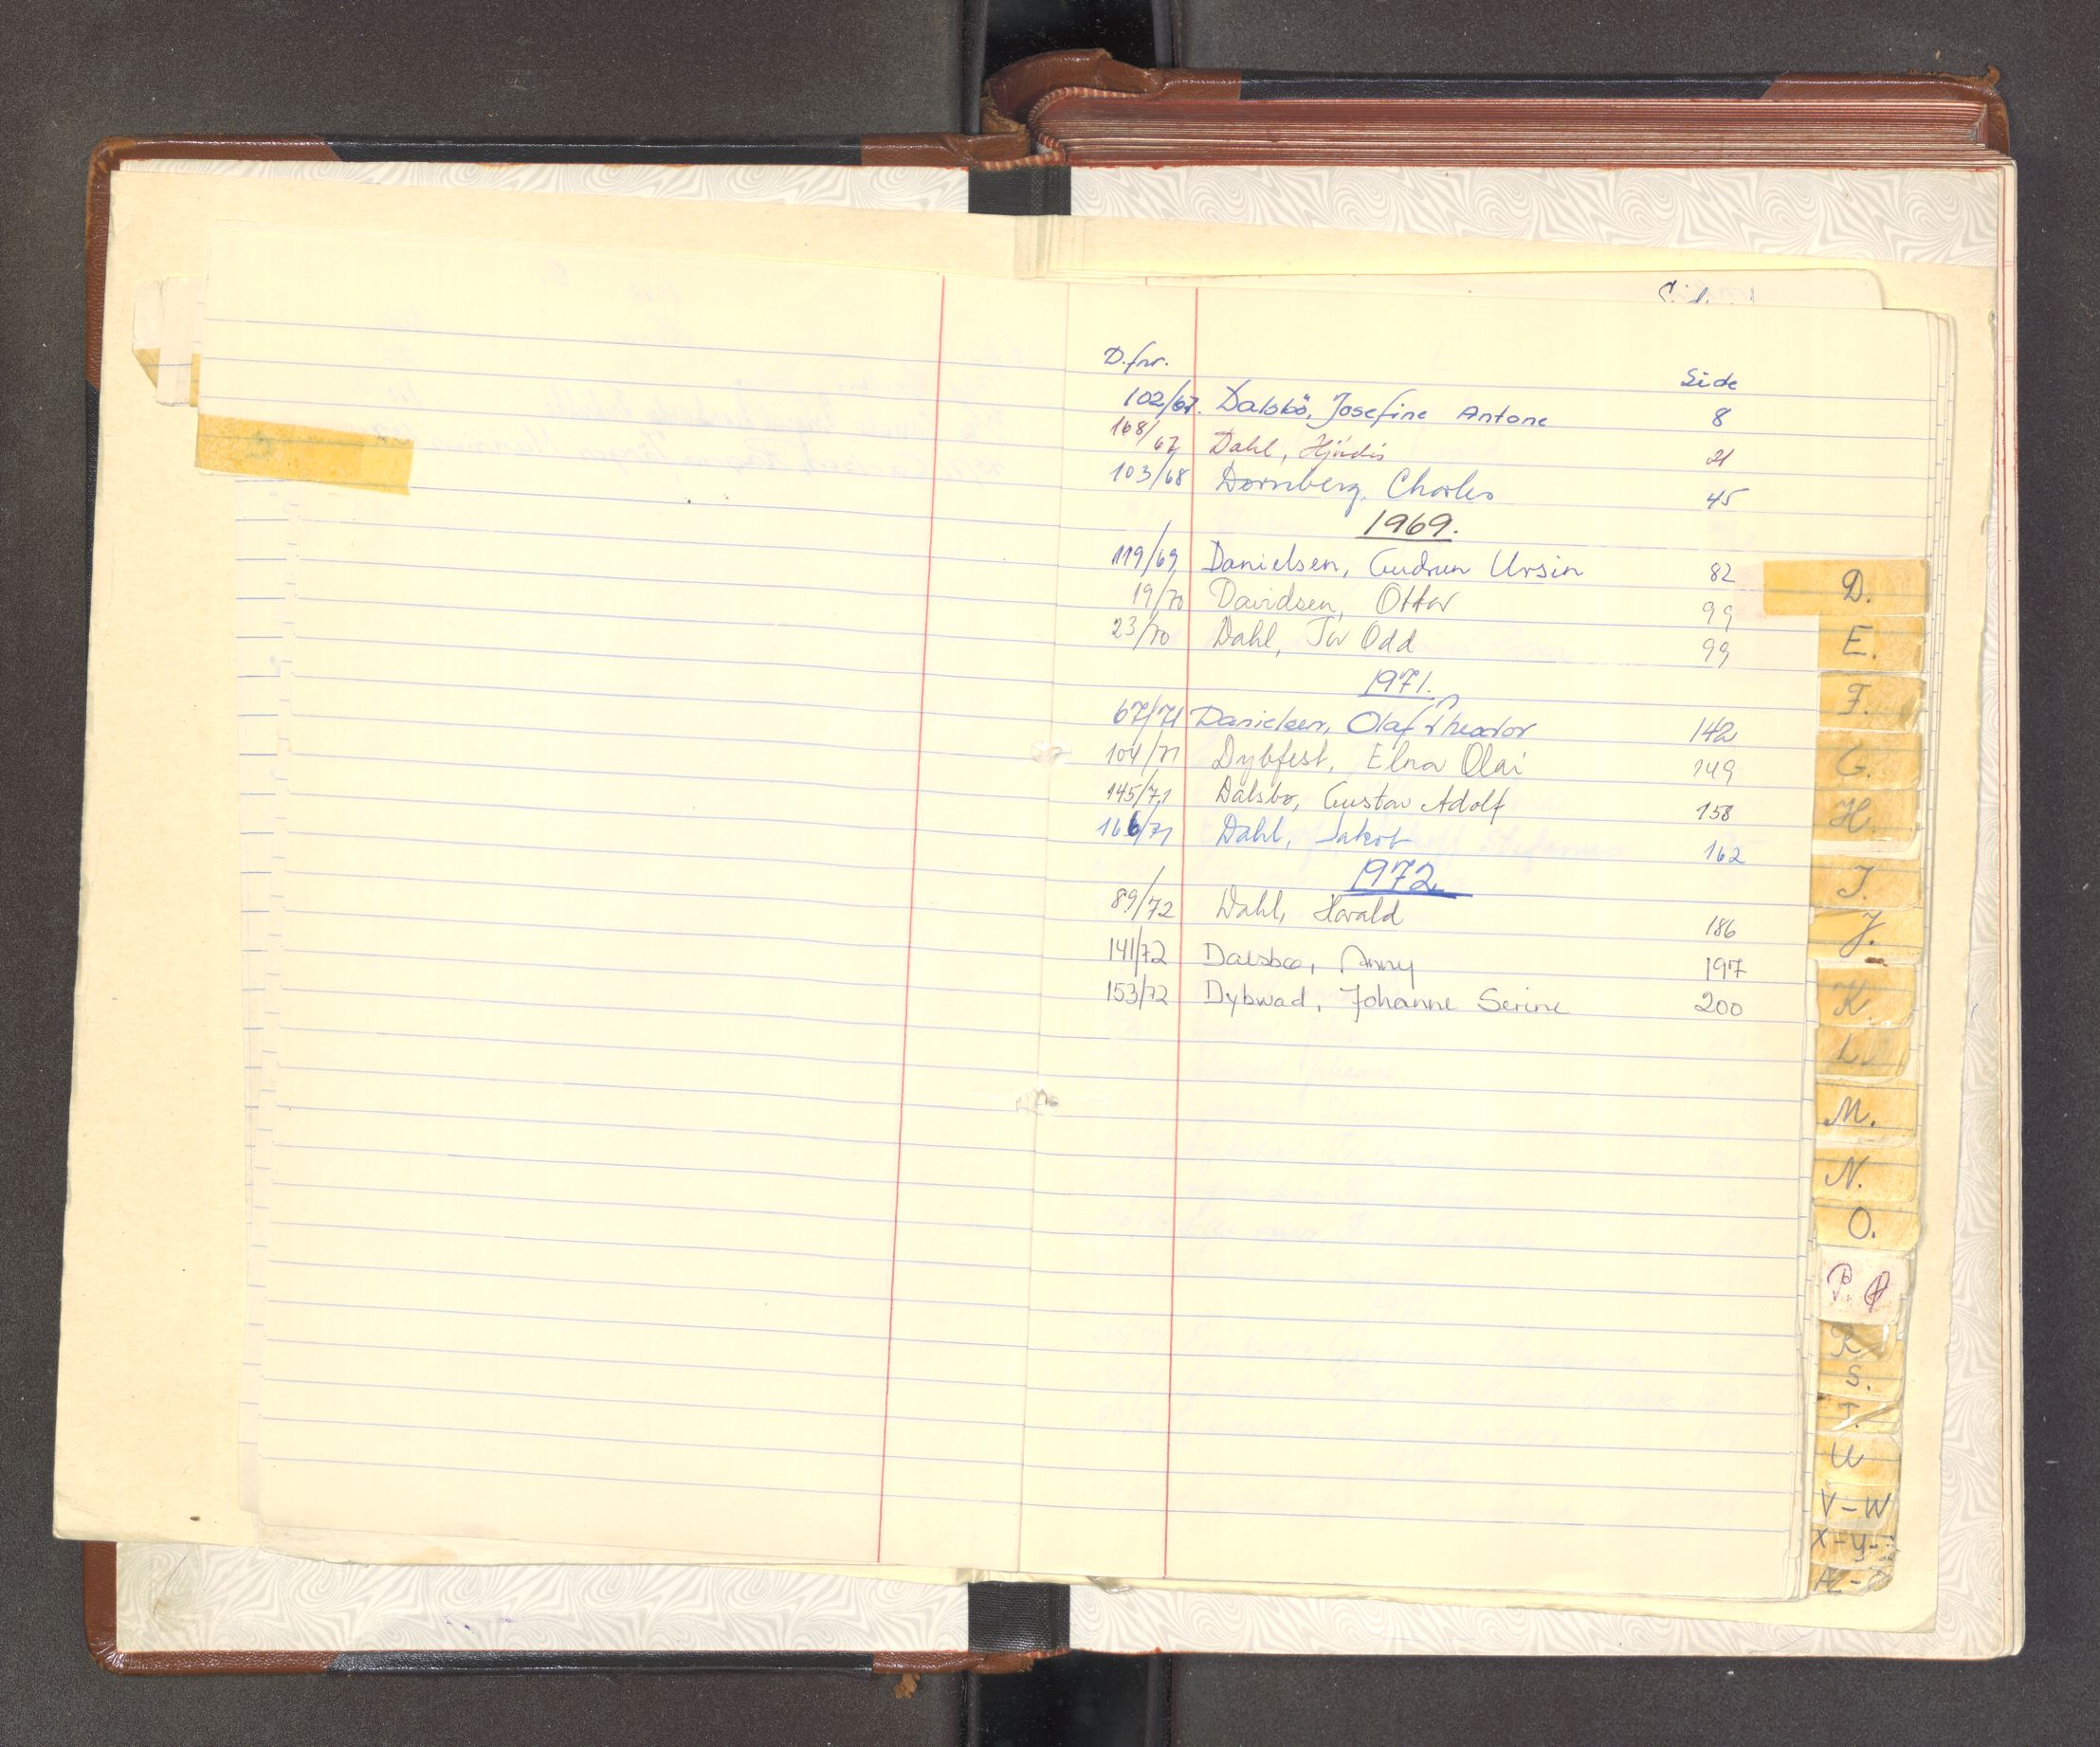 D.fnr. Side
102/67. Dalsbö, Josefine Antone 8
168/67 Dahl, Hjördis 21
103/68 Dornberg, Charles 45
1969.
119/69 Danielsen, Gudrun Ursin 82
19/70 Davidsen, Ottar 99
23/70 Dahl, Odd 99
1971.
67/71 Danielsen, Olaf Theodor 142
104/71 Dybfest, Elna Olai 149
145/71 Dalsbo, Gustav Adolf 158
166/71 Dahl, Jakob 162
1972
89/72 Dahl, Harald 186
141/72 Dalsbø, Anny 197
153/72 Dybwad, Johanne Serine 200
D.
E.
F.
G.
H.
I.
J.
K.
L.
M.
N.
O.
P.
R
S.
T.
U
V-W
X-Y-